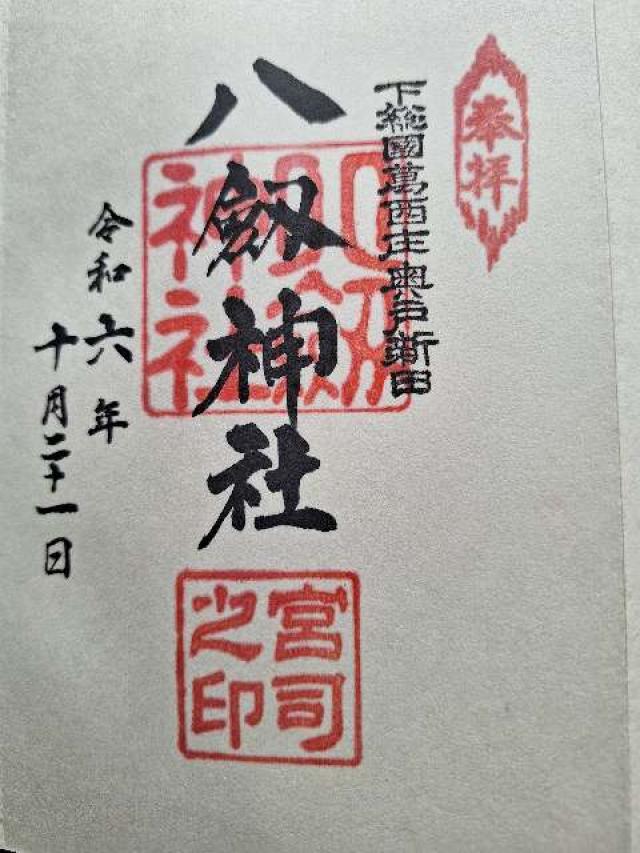 奉拝
下総國葛西庄奥戸新田
八劔神社
神社
令和六年
十月二十一日
宮司
之印